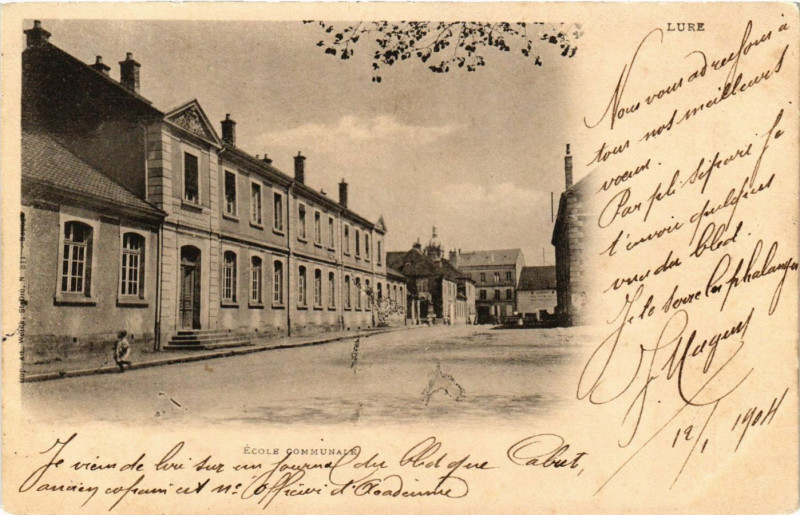 LURE
Nous vous adressons à
tous nos meilleurs
vœux.
Par pli séparé je
t'envoie quelques
vues du bled.
Je te serre les phalanges
J. Magny
12/1 1904
ÉCOLE COMMUNALE
Je viens de lire sur un journal du bled que Cabet,
ancien copain est n. Officier d'Académie